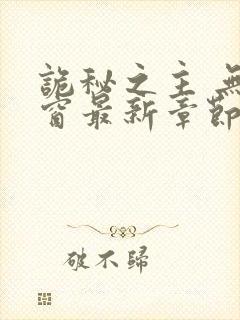 詭秘之主 無
窗最新章節
破不歸